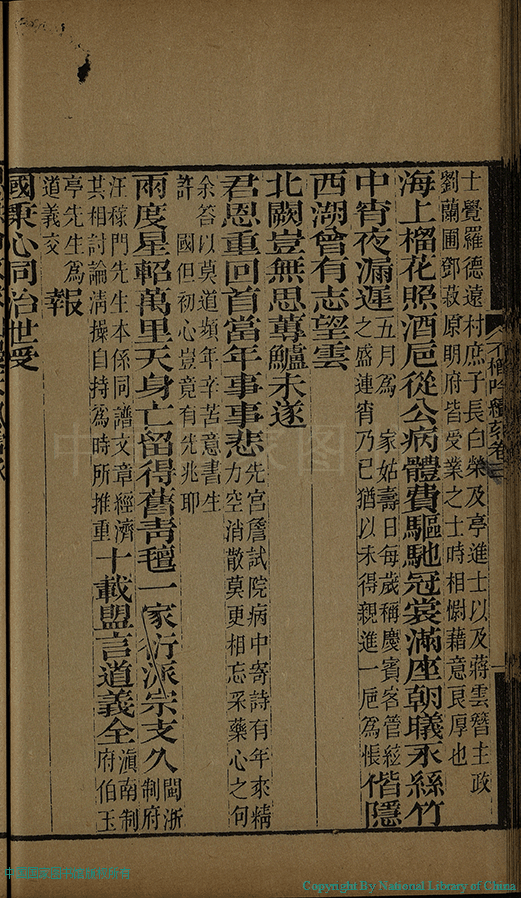 士覺羅德遠村庶子長白榮及亭進士以及蔣雲簪主政
劉蘭圃鄧菽原明府皆受業之士時相慰藉意良厚也
海上榴花照酒卮從公病體費驅馳冠裳滿座朝曦永絲竹
中宵夜漏遲五月為家姑壽日每歲稱慶賓客管絃之盛連宵乃已猶以未得親進一卮為悵偕隱
西湖曾有志望雲
北闕豈無思蓴鱸未遂
君恩重回首當年事事悲先宮詹試院病中寄詩有年來精力空消散莫更相忘采藥心之句
余答以莫道頻年辛苦意書生許國但初心豈竟有先兆耶
兩度星軺萬里天身亡留得舊青氊一家衍派宗支久閩浙制府
汪稼門先生本係同譜文章經濟其相討論清操自持為時所推重十載盟言道義全滇南制府伯玉
亭先生為道義交報
國秉心同治世受
不櫛吟續刻卷三
Copyright By National Library of China